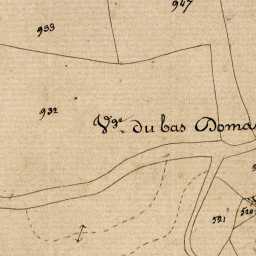 947
933
932
V.ge du bas Doma
521
520